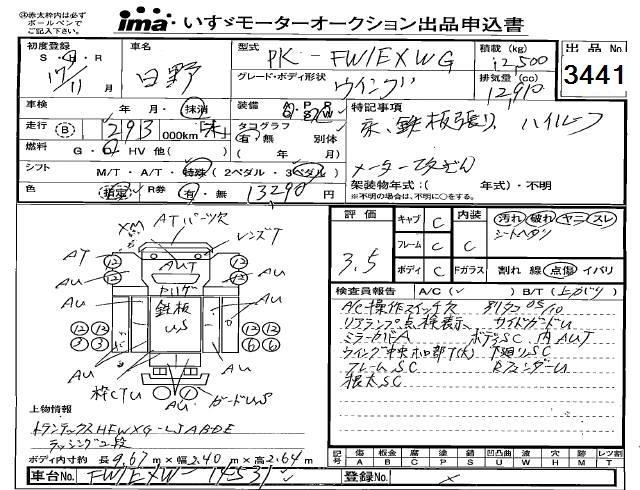 ㊟赤太枠内は必ず
ボールペンで
ご記入下さい。
ima いすゞモーターオークション出品申込書
初度登録 車名 型式 PK-FW1EXWG 積載(kg) 12500 出品No.
S・H・R 17/11 月 日野 グレード・ボディ形状 ウイング 排気量(cc) 12910 3441
車検 年・月・抹消 装備 A・P・R W 特記事項
走行 B 293 000km 「未」 タコグラフ 有・無 別体 床、鉄板張り、ハイルーフ
燃料 G・HV 他( ) ( 年/ 月)
シフト M/T・A/T・特殊(2ペダル・3ペダル) メーター改ざん
色 指定 R券 有・無 13290 円 架装物年式:( 年式)・不明
※不明の場合は、不明に○をする。
評価 3.5
キャブ C 内装 C 汚れ 破れ ヤニ スレ
フレーム C シートヘタリ
ボディ C Fガラス 割れ 線 点傷 イバリ
検査員報告 A/C( ✓ ) B/T(上がり)
A/C操作スイッチ欠 別タコ 05/10
リアランプ点検表示 サイドガードU
ミラーカバーA ボデーSC、内AUT
ウイング中央ホロ部T(大) 下廻りSC
フレームSC RフェンダーU
根太SC
XM
ATパーツ欠
レンズT
AT
AUT
AU
鉄板
US
枠CTU
ガードUS
12 12 12 12
12 12 12 12
3 3 6 6
上物情報
トランテックスHFWXG-LJABDE
ラッシング2段
ボディ内寸約 長 9.67 m×幅 2.40 m×高 2.64 m
記号 傷 板金 腐 補 塗 錆 凹凸曲 波 穴 時 レツ割
A B C P S U W H M T
車台No. FW1EXW-14531 登録No. ×